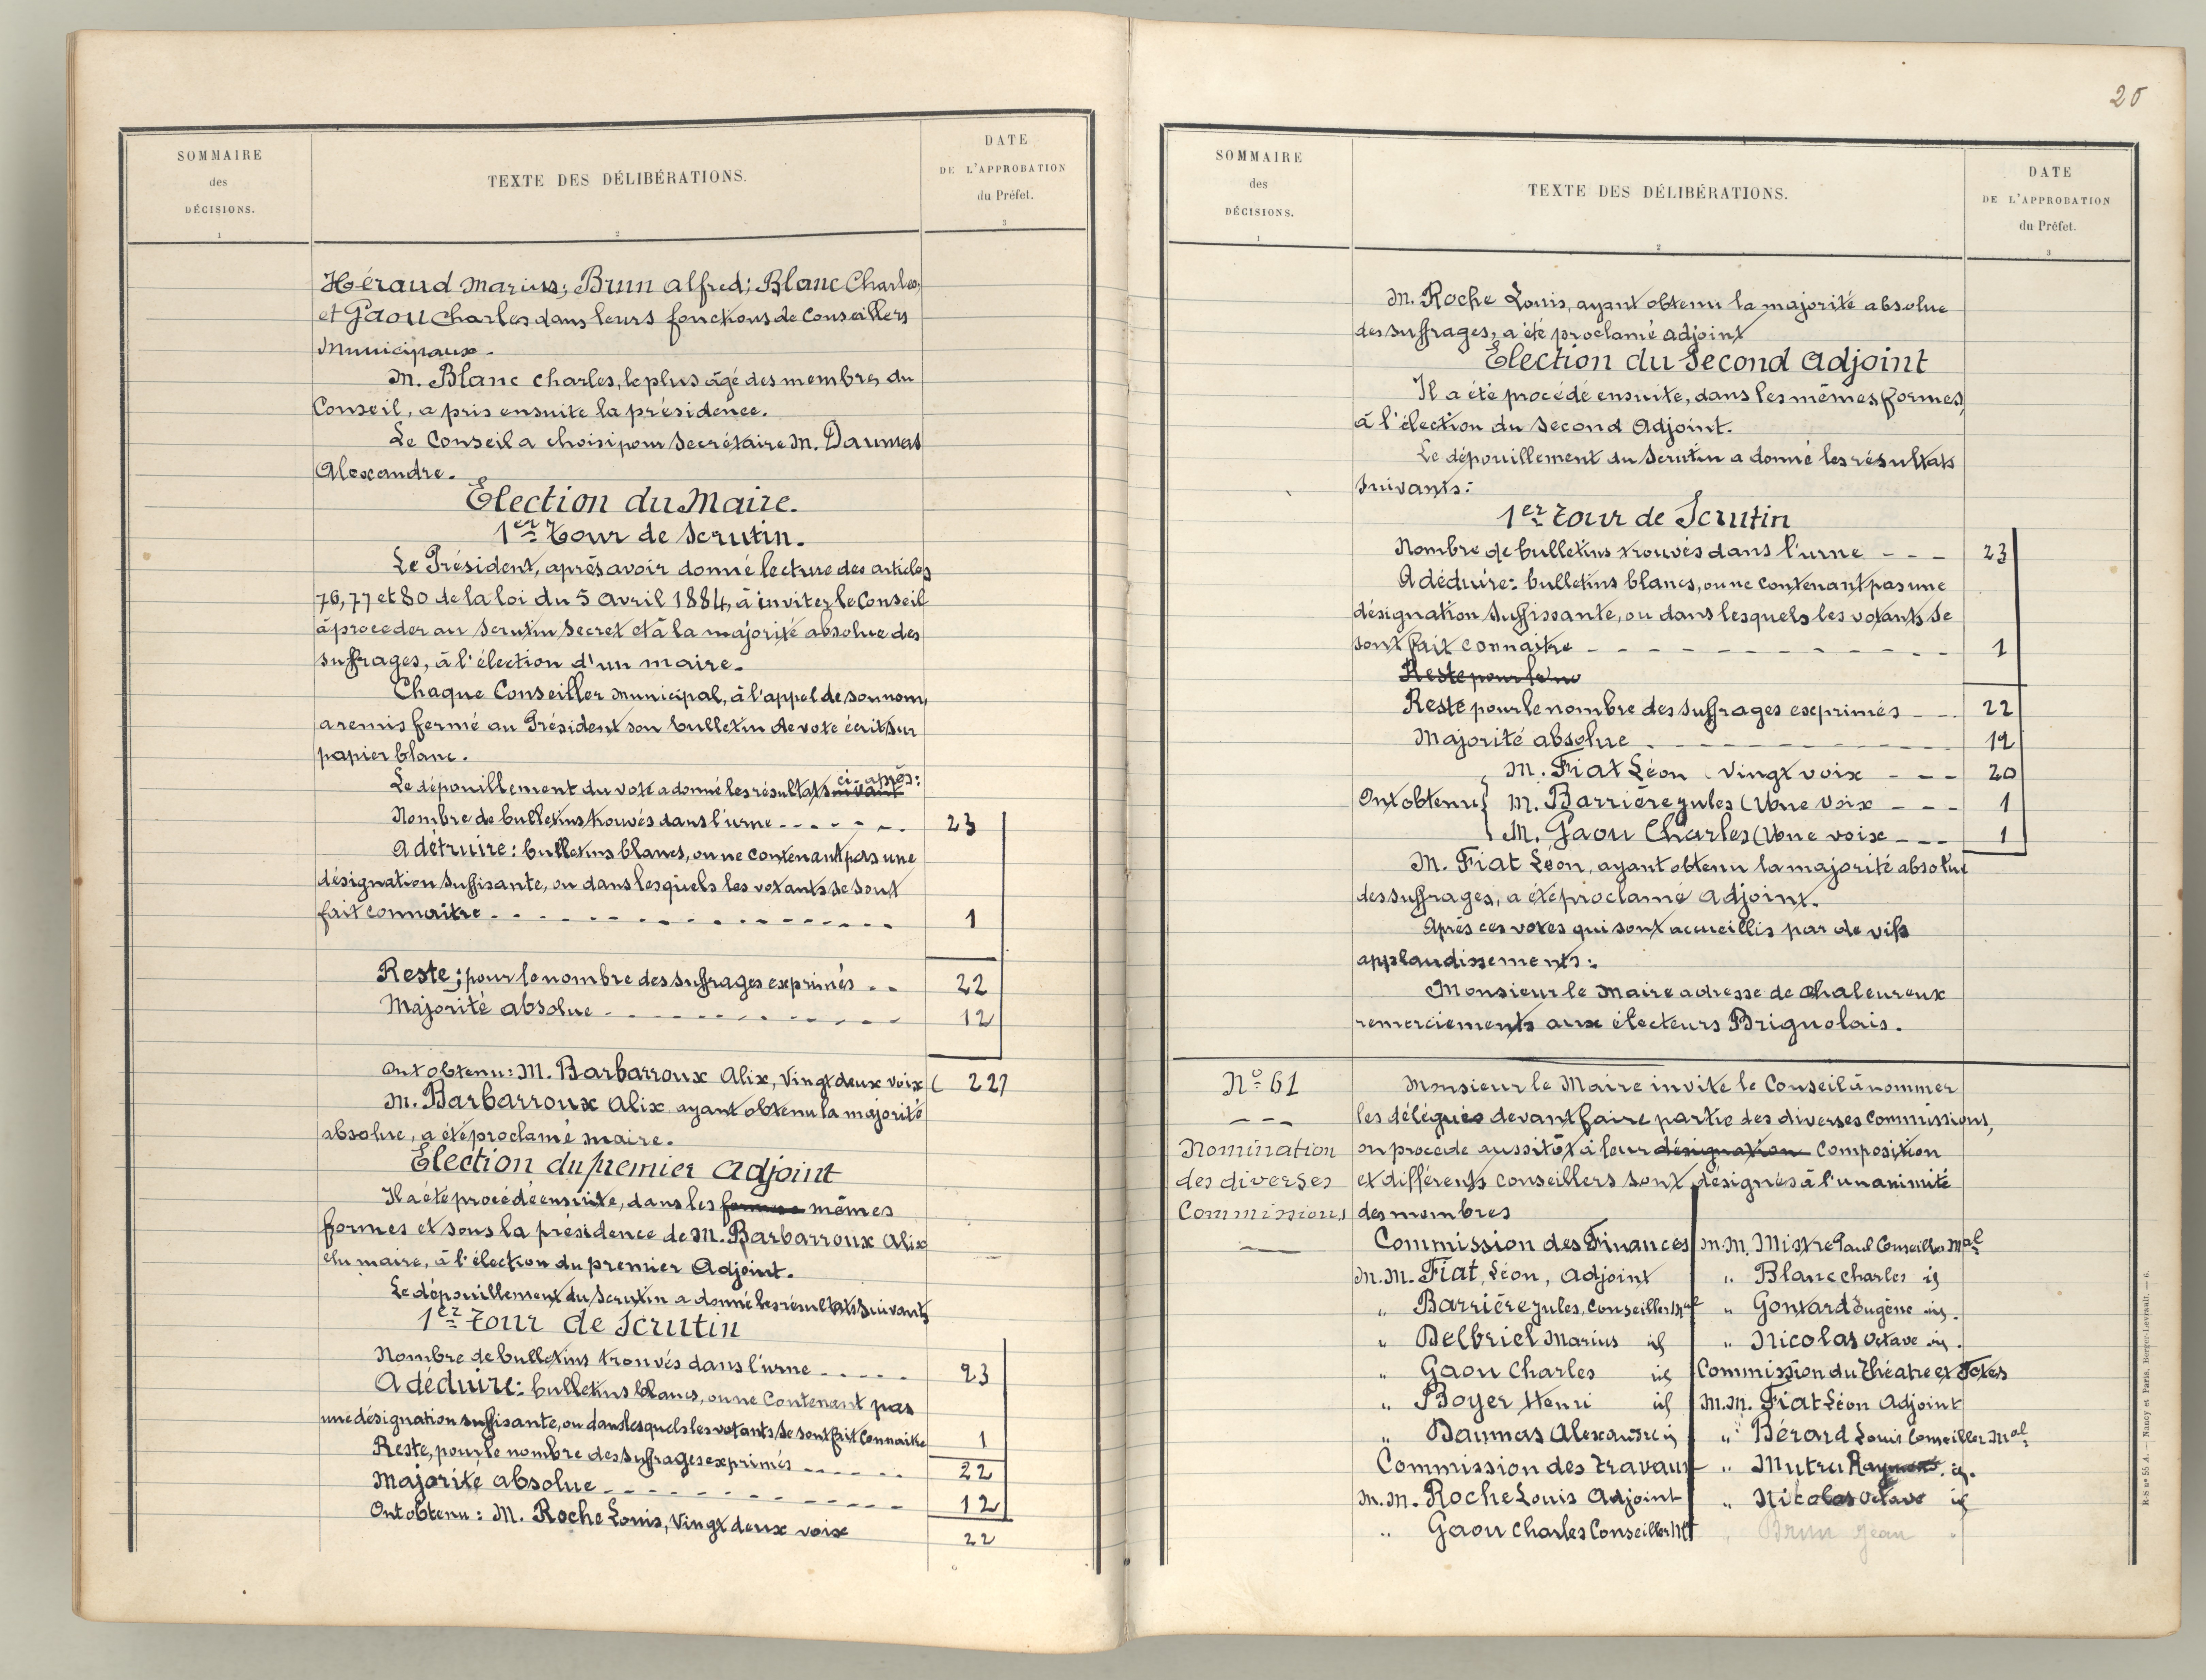 SOMMAIRE
des
DÉCISIONS.
1
TEXTE DES DÉLIBÉRATIONS.
2
DATE
DE L'APPROBATION
du Préfet.
3
Héraud Marius; Brun Alfred; Blanc Charles,
et Gaou Charles dans leurs fonctions de Conseillers
Municipaux.
M. Blanc Charles, le plus âgé des membres du
Conseil, a pris ensuite la présidence.
Le Conseil a choisi pour Secrétaire M. Daumas
Alexandre.
Election du Maire.
1er tour de Scrutin.
Le Président, après avoir donné lecture des articles
76, 77 et 80 de la loi du 5 Avril 1884, à inviter le Conseil
à proceder au scrutin secret et à la majorité absolue des
suffrages, à l'élection d'un maire.
Chaque Conseiller municipal, à l'appel de son nom,
a remis fermé au Président son bulletin de vote écrit sur
papier blanc.
Le dépouillement du vote a donné les résultats suivant ci-après:
Nombre de bulletins trouvés dans l'urne - - - - - 23
A détruire: bulletins blancs, ou ne contenant pas une
désignation suffisante, ou dans lesquels les votants se sont
fait connaitre - - - - - - - - 1
Reste; pour le nombre des suffrages exprimés - - 22
Majorité absolue - - - - - - - - 12
Ont obtenu: M. Barbarroux Alix, Vingt deux voix ( 22)
M. Barbarroux Alix ayant obtenu la majorité
absolue, a été proclamé maire.
Election du premier Adjoint
Il a été procédé ensuite, dans les mêmes
formes et sous la présidence de M. Barbarroux Alix
élu maire, à l'élection du premier Adjoint.
Le dépouillement du Scrutin a donné les résultats suivants
1er tour de Scrutin
Nombre de bulletins trouvés dans l'urne - - - - - 23
A déduire: bulletins blancs, ou ne Contenant pas
une désignation suffisante, ou dans lesquels les votants se sont fait Connaitre 1
Reste, pour le nombre des suffrages exprimés - - - - - 22
Majorité absolue - - - - - - - - 12
Ont obtenu: M. Roche Louis, Vingt deux voix 22
20
SOMMAIRE
des
DÉCISIONS.
1
TEXTE DES DÉLIBÉRATIONS.
2
DATE
DE L'APPROBATION
du Préfet.
3
M. Roche Louis, ayant obtenu la majorité absolue
des suffrages, a été proclamé adjoint
Election du Second Adjoint
Il a été procédé ensuite, dans les mêmes formes,
à l'élection du Second Adjoint.
Le dépouillement du Scrutin a donné les résultats
suivants:
1er tour de Scrutin
Nombre de bulletins trouvés dans l'urne - - - 23
A déduire: bulletins blancs, ou ne contenant pas une
désignation Suffissante, ou dans lesquels les votants se
sont fait connaitre - - - - - - - - 1
Reste pour le
Reste pour le nombre des suffrages exprimés - - 22
Majorité absolue - - - - - - - - 12
M. Fiat Léon (Vingt voix - - - 20
Ont obtenu { M. Barrière Jules (Une voix - - - 1
M. Gaou Charles (Une voix - - - 1
M. Fiat Léon, ayant obtenu la majorité absolue
des suffrages, a été proclamé Adjoint.
Après ces votes qui sont accueillis par de vifs
applaudissements:
Monsieur le Maire adresse de Chaleureux
remerciements aux électeurs Brignolais.
No 61
Nomination
des diverses
Commissions
Monsieur le Maire invite le Conseil à nommer
les délégués devant faire partie des diverses Commissions,
on procède aussitôt à leur désignation Composition
et différents Conseillers sont désignés à l'unanimité
des membres
Commission des Finances
M.M. Fiat, Léon, Adjoint
" Barrière Jules, Conseiller Mal
" Delbriel Marius id
" Gaou Charles id
" Boyer Henri id
" Daumas Alexandre id
Commission des Travaux
M.M. Roche Louis Adjoint
" Gaou Charles Conseiller Mal
M.M. Mistre Paul Conseiller Mal
" Blanc Charles id
" Gontard Eugène id.
" Nicolas Octave id.
Commission du Théatre et Fêtes
M.M. Fiat Léon Adjoint
" Bérard Louis Conseiller Mal
" Mutru id.
" Nicolas Octave id
" Brun Jean "
R-S no 55 A. — Nancy et Paris, Berger-Levrault. — 6.